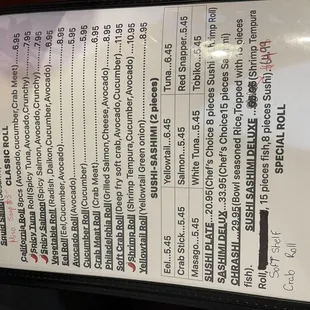 CLASSIC ROLL
California Roll 8pcs (Avocado,Cucumber,Crab Meat)...6.95
Spicy Tuna Roll(Spicy Tuna,Avocado,Crunchy)...7.95
Spicy Salmon,Avocado,Crunchy)...7.95
Vegetable Roll (Radish ,Daikon,Cucumber,Avocado)...6.95
Avocado Roll(Avocado)
Eel Roll(Eel,Cucumber,Avocado)...8.95
Cucumber Roll(Cucumber)
Crab Meat Roll (Crab Meat)
Philadelphia Roll(Grilled Salmon,Cheese,Avocado)...8.95
Soft Crab Roll(Deep fry soft crab,Avocado,Cucumber)...11.95
Shrimp Roll (Shrimp Tempura,Cucumber,Avocado)...10.95
Yellowtail Roll(Yellowtail Green onion)...8.95
SUSHI-SASHIMI (2 pieces)
Eel...5.45 Yellowtail...6.45 Tuna...6.45
Crab Stick...5.45 Salmon...5.45 Red Snapper...5.45
Masago...5.45 White Tuna...5.45 Tobiko...5.45
SUSHI PLATE ..20.95(Chef's Choice 8 pieces Sushi Roll)
SUSHI DELUX ..33.95(Chef's Choice15 pieces
CHRASHI...29.95(Bowl seasoned Rice,Topped with pieces
fish).
SUSHI SASHIMI DELUXE (Shrimp Tempura
Roll, 15 pieces fish,8 pieces Sushi)
Soft Shelf
Crab Roll
SPECIAL ROLL